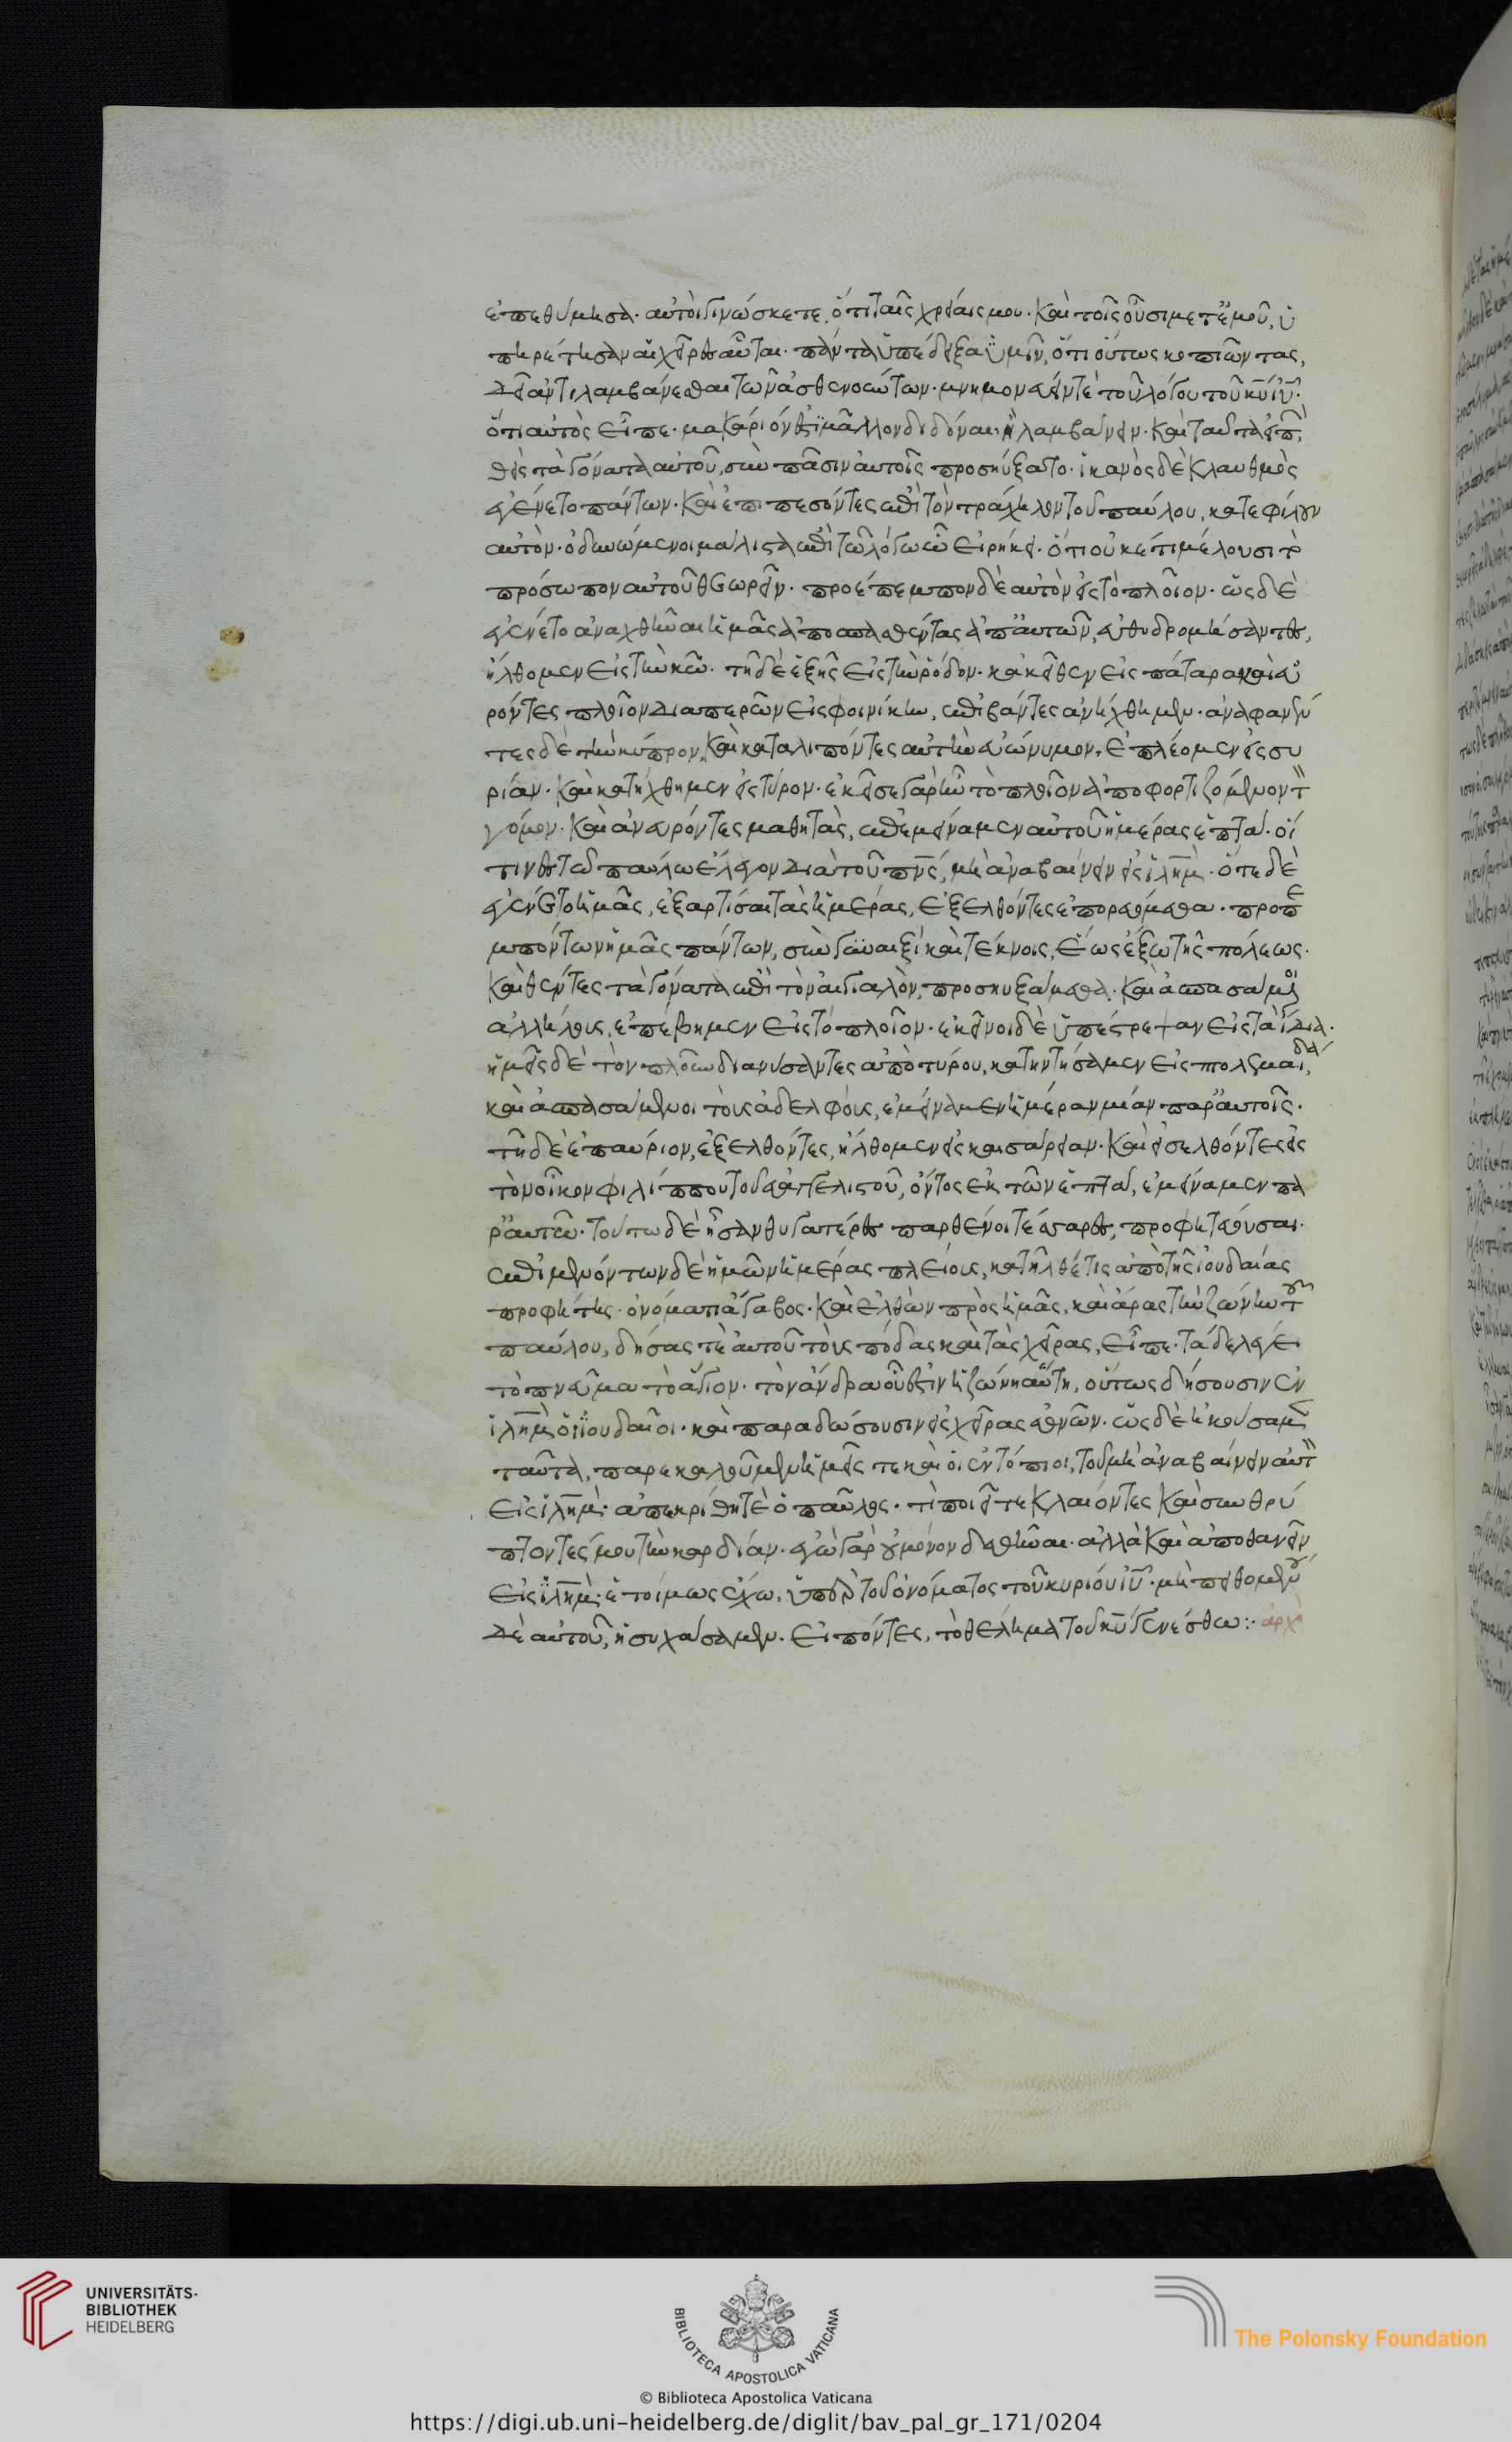 ἐπεθύμησα· αὐτοὶ γινώσκετε, ὅτι ταῖς χρείαις μου· καὶ τοῖς οὖσι μετ' ἐμοῦ, ὑ
πηρέτησαν αἱ χεῖρες αὗται· πάντα ὑπέδειξα ὑμῖν, ὅτι οὕτως κοπιῶντας,
δεῖ ἀντιλαμβάνεσθαι τῶν ἀσθενούντων· μνημονεύειν τὲ τοῦ λόγου τοῦ κυ ιυ·
ὅτι αὐτὸς εἶπε· μακάριόν ἐστι μᾶλλον διδόναι ἢ λαμβάνειν· καὶ ταῦτα εἰπ
θεὶς τὰ γόνατα αὐτοῦ, σὺν πᾶσιν αὐτοῖς προσηύξατο· ἱκανὸς δὲ κλαυθμὸς
ἐγένετο πάντων· καὶ ἐπιπεσόντες ἐπὶ τὸν τράχηλον τοῦ παύλου, κατεφίλουν
αὐτὸν· ὀδυνώμενοι μάλιστα ἐπὶ τῶ λόγω ὧ εἰρήκει· ὅτι οὐκέτι μέλουσι τὸ
πρόσωπον αὐτοῦ θεωρεῖν· προέπεμπον δὲ αὐτὸν εἰς τὸ πλοῖον· ὡς δὲ
ἐγένετο ἀναχθῆναι ἡμᾶς ἀποσπασθέντας ἀπ' αὐτῶν, εὐθυδρομήσαντες,
ἤλθομεν εἰς τὴν κῶ· τῇ δὲ ἑξῆς εἰς τὴν ῥόδον· κἀκεῖθεν εἰς πάταρα καὶ εὑ
ρόντες πλοῖον διαπερῶν εἰς φοινίκην, ἐπιβάντες ἀνήχθημεν· ἀναφανέν
τες δὲ τὴν κύπρον, καὶ καταλιπόντες αὐτὴν εὐώνυμον, ἐπλέομεν εἰς συ
ρίαν· καὶ κατήχθημεν εἰς τύρον· ἐκεῖσε γὰρ ἦν τὸ πλοῖον ἀποφορτιζόμενον τ
γόμον· καὶ ἀνευρόντες μαθητὰς, ἐπεμείναμεν αὐτοῦ ἡμέρας ἑπτά· οἵ
τινες τῶ παύλω ἔλεγον διὰ τοῦ πνς, μὴ ἀναβαίνειν εἰς ιλημ· ὅτε δὲ
ἐγένετο ἡμᾶς, ἐξαρτίσαι τὰς ἡμέρας, ἐξελθόντες ἐπορευόμεθα· προπε
μπόντων ἡμᾶς πάντων, σὺν γυναιξὶ καὶ τέκνοις, ἕως ἔξω τῆς πόλεως·
καὶ θέντες τὰ γόνατα ἐπὶ τὸν αἰγιαλὸν, προσηυξάμεθα· καὶ ἀσπασάμενοι
ἀλλήλους, ἐπέβημεν εἰς τὸ πλοῖον· ἐκεῖνοι δὲ ὑπέστρεψαν εἰς τὰ ἴδια·
ἡμεῖς δὲ τὸν πλοῦν διανύσαντες ἀπὸ τύρου, κατηντήσαμεν εἰς πολεμαίδα,
καὶ ἀσπασάμενοι τοὺς ἀδελφοὺς, ἐμείναμεν ἡμέραν μίαν παρ' αὐτοῖς·
τῇ δὲ ἐπαύριον, ἐξελθόντες, ἤλθομεν εἰς καισάρειαν· καὶ εἰσελθόντες εἰς
τὸν οἶκον φιλίππου τοῦ εὐαγγελιστοῦ, ὄντος ἐκ τῶν ἑπτά, ἐμείναμεν πα
ρ' αὐτῶ· τούτω δὲ ἦσαν θυγατέρες παρθένοι τέσσαρες, προφητεύουσαι·
ἐπιμενόντων δὲ ἡμῶν ἡμέρας πλείους, κατῆλθέ τις ἀπὸ τῆς ἰουδαίας
προφήτης· ὀνόματι ἄγαβος· καὶ ἐλθὼν πρὸς ἡμᾶς, καὶ ἄρας τὴν ζώνην τοῦ
παύλου, δήσας τὲ αὐτοῦ τοὺς πόδας καὶ τὰς χεῖρας, εἶπε· τάδε λέγει
τὸ πνεῦμα τὸ ἅγιον· τὸν ἄνδρα οὗ ἐστὶν ἡ ζώνη αὕτη, οὕτως δήσουσιν ἐν
ιλημ οἱ ἰουδαῖοι· καὶ παραδώσουσιν εἰς χεῖρας ἐθνῶν· ὡς δὲ ἠκούσαμεν
ταῦτα, παρεκαλοῦμεν ἡμεῖς τε καὶ οἱ ἐντόπιοι, τοῦ μὴ ἀναβαίνειν αὐτ
εἰς ιλημ· ἀπεκρίθη τὲ ὁ παῦλος· τί ποιεῖτε κλαίοντες καὶ συνθρύ
πτοντές μου τὴν καρδίαν· ἐγὼ γὰρ οὐ μόνον δεθῆναι· ἀλλὰ καὶ ἀποθανεῖν
εἰς ιλημ· ἑτοίμως ἔχω, ὑπὲρ τοῦ ὀνόματος τοῦ κυρίου ιυ· μὴ πειθομένου
δὲ αὐτοῦ, ἡσυχάσαμεν· εἰπόντες, τὸ θέλημα τοῦ κυ γενέσθω:· ἀρχὴ
UNIVERSITÄTS-
BIBLIOTHEK
HEIDELBERG
BIBLIOTECA APOSTOLICA VATICANA
© Biblioteca Apostolica Vaticana
The Polonsky Foundation
https://digi.ub.uni-heidelberg.de/diglit/bav_pal_gr_171/0204